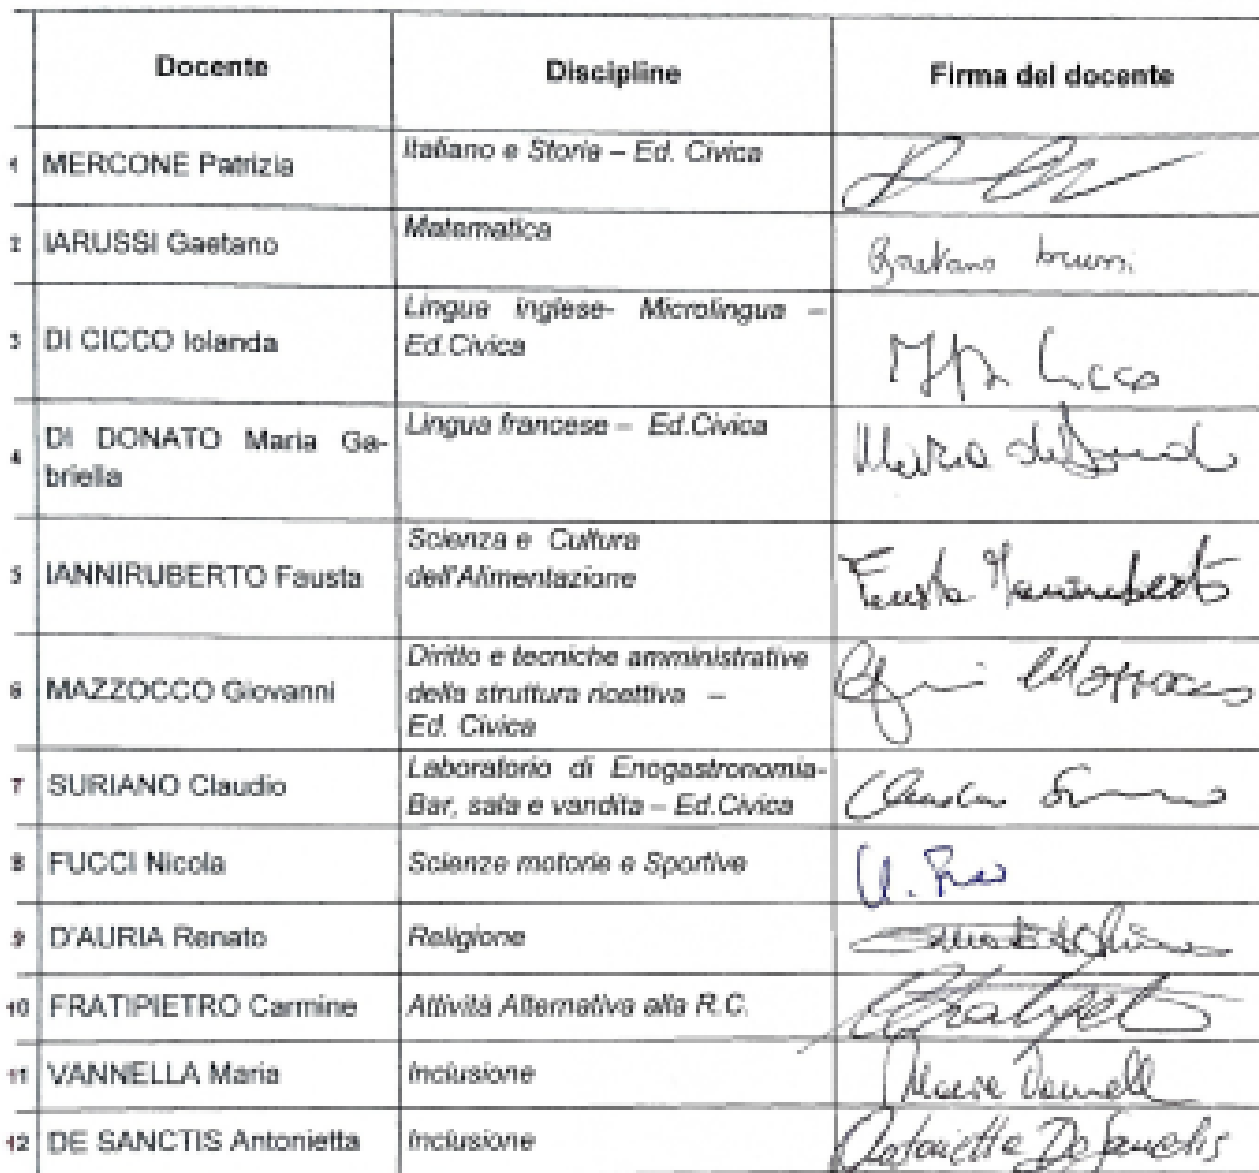 Docente Discipline Firma del docente
1 MERCONE Patrizia Italiano e Storia – Ed. Civica
2 IARUSSI Gaetano Matematica Gaetano Iarussi
3 DI CICCO Iolanda Lingua inglese- Microlingua –
Ed.Civica
4 DI DONATO Maria Ga-
briella Lingua francese – Ed.Civica Maria
5 IANNIRUBERTO Fausta Scienza e Cultura
dell'Alimentazione Fausta Ianniruberto
6 MAZZOCCO Giovanni Diritto e tecniche amministrative
della struttura ricettiva –
Ed. Civica Mazzocco
7 SURIANO Claudio Laboratorio di Enogastronomia-
Bar, sala e vandita – Ed.Civica Claudio
8 FUCCI Nicola Scienze motorie e Sportive
9 D'AURIA Renato Religione
10 FRATIPIETRO Carmine Attività Alternativa alla R.C.
11 VANNELLA Maria Inclusione Maria Vannella
12 DE SANCTIS Antonietta Inclusione Antonietta De Sanctis